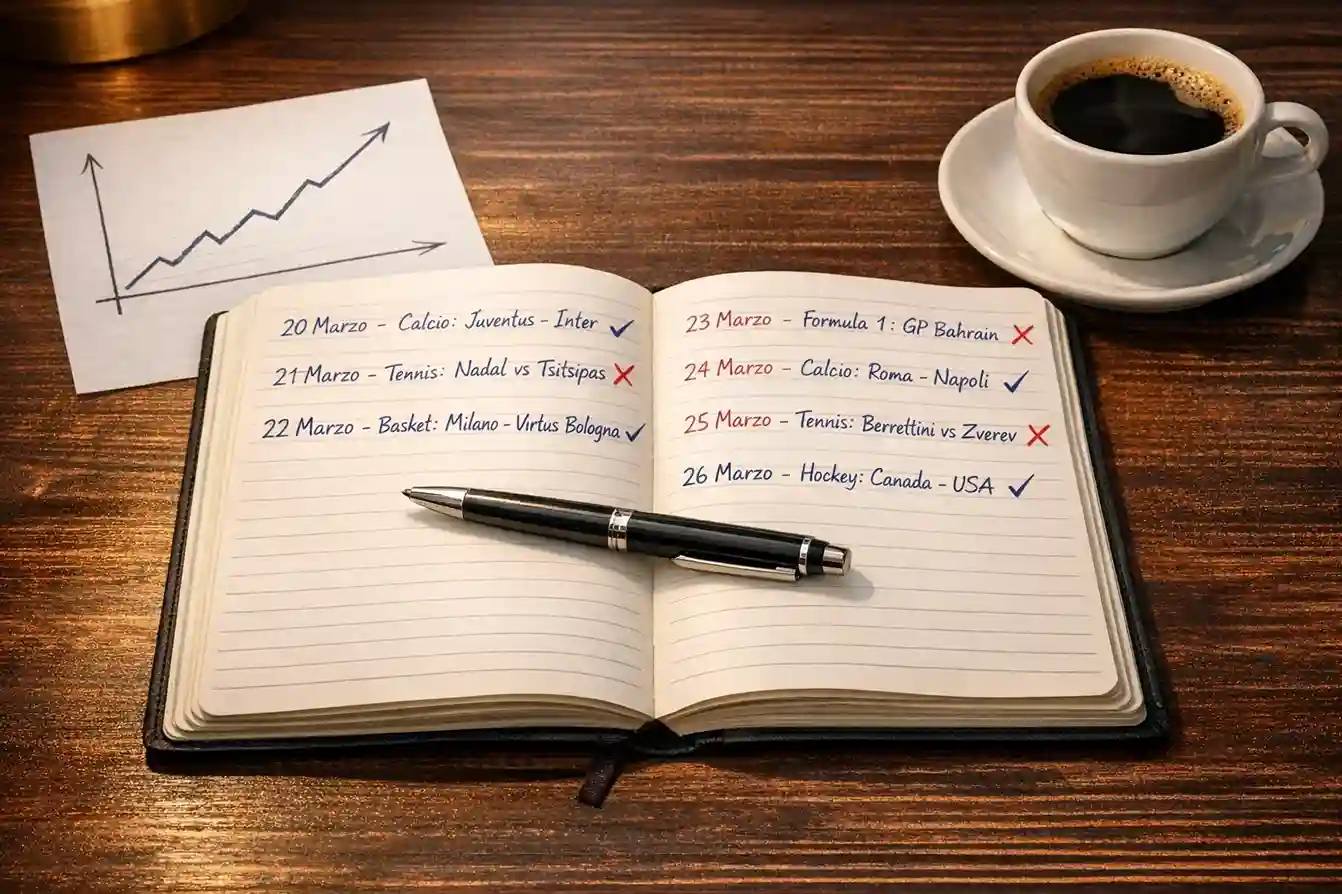 20 Marzo - Calcio: Juventus - Inter ✓
21 Marzo - Tennis: Nadal vs Tsitsipas ✗
22 Marzo - Basket: Milano - Virtus Bologna ✓
23 Marzo - Formula 1: GP Bahrain ✗
24 Marzo - Calcio: Roma - Napoli ✓
25 Marzo - Tennis: Berrettini vs Zverev ✗
26 Marzo - Hockey: Canada - USA ✓